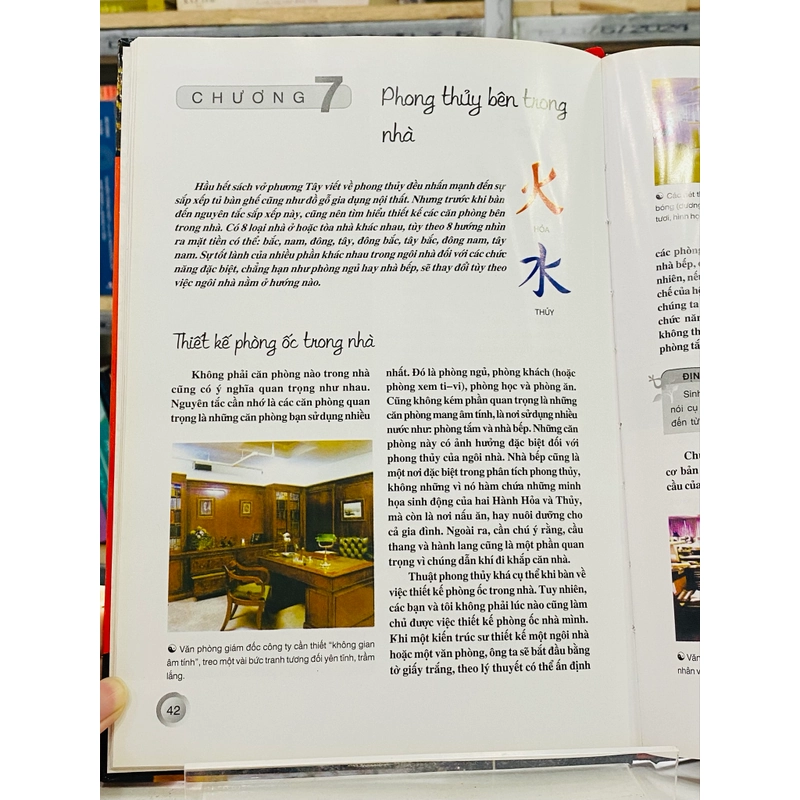 13/6/2024
CHƯƠNG 7
Phong thủy bên trong
nhà
Hầu hết sách vở phương Tây viết về phong thủy đều nhấn mạnh đến sự
sắp xếp tủ bàn ghế cũng như đồ gỗ gia dụng nội thất. Nhưng trước khi bàn
đến nguyên tắc sắp xếp này, cũng nên tìm hiểu thiết kế các căn phòng bên
trong nhà. Có 8 loại nhà ở hoặc tòa nhà khác nhau, tùy theo 8 hướng nhìn
ra mặt tiền có thể: bắc, nam, đông, tây, đông bắc, tây bắc, đông nam, tây
nam. Sự tốt lành của nhiều phần khác nhau trong ngôi nhà đối với các chức
năng đặc biệt, chẳng hạn như phòng ngủ hay nhà bếp, sẽ thay đổi tùy theo
việc ngôi nhà nằm ở hướng nào.
火
HỎA
水
THỦY
Thiết kế phòng ốc trong nhà
Không phải căn phòng nào trong nhà
cũng có ý nghĩa quan trọng như nhau.
Nguyên tắc cần nhớ là các căn phòng quan
trọng là những căn phòng bạn sử dụng nhiều
Văn phòng giám đốc công ty cần thiết "không gian
âm tính", treo một vài bức tranh tương đối yên tĩnh, trầm
lắng.
nhất. Đó là phòng ngủ, phòng khách (hoặc
phòng xem ti-vi), phòng học và phòng ăn.
Cũng không kém phần quan trọng là những
căn phòng mang âm tính, là nơi sử dụng nhiều
nước như: phòng tắm và nhà bếp. Những căn
phòng này có ảnh hưởng đặc biệt đối với
phong thủy của ngôi nhà. Nhà bếp cũng là
một nơi đặc biệt trong phân tích phong thủy,
không những vì nó hàm chứa những minh
họa sinh động của hai Hành Hỏa và Thủy,
mà còn là nơi nấu ăn, hay nuôi dưỡng cho
cả gia đình. Ngoài ra, cần chú ý rằng, cầu
thang và hành lang cũng là một phần quan
trọng vì chúng dẫn khí đi khắp căn nhà.
Thuật phong thủy khá cụ thể khi bàn về
việc thiết kế phòng ốc trong nhà. Tuy nhiên,
các bạn và tôi không phải lúc nào cũng làm
chủ được việc thiết kế phòng ốc nhà mình.
Khi một kiến trúc sư thiết kế một ngôi nhà
hoặc một văn phòng, ông ta sẽ bắt đầu bằng
tờ giấy trắng, theo lý thuyết có thể ấn định
42
bóng (dương
tươi, hình họ
các phòng
nhà bếp,
nhiên, nếu
chế của hệ
chúng ta
chức năn
không th
phòng tắ
ĐỊN
Sinh
nói cụ
đến từ
Chú
cơ bản
cầu của
Văn
nhân v